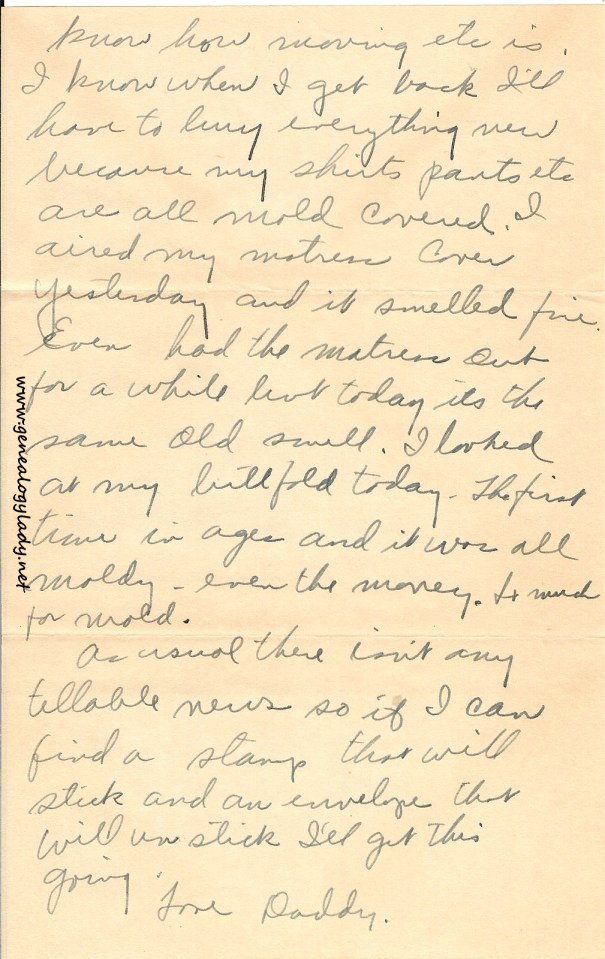 know how moving etc is.
I know when I get back I'll
have to buy everything new
because my shirts pants etc
are all mold covered. I
aired my matress cover
yesterday and it smelled fine.
Even had the matress out
for a while but today its the
same old smell. I looked
at my billfold today - the first
time in ages and it was all
moldy - even the money. So much
for mold.
As usual there isn't any
tellable news so if I can
find a stamp that will
stick and an envelope that
will unstick I'll get this
going.
Love Daddy.
www.genealogylady.net